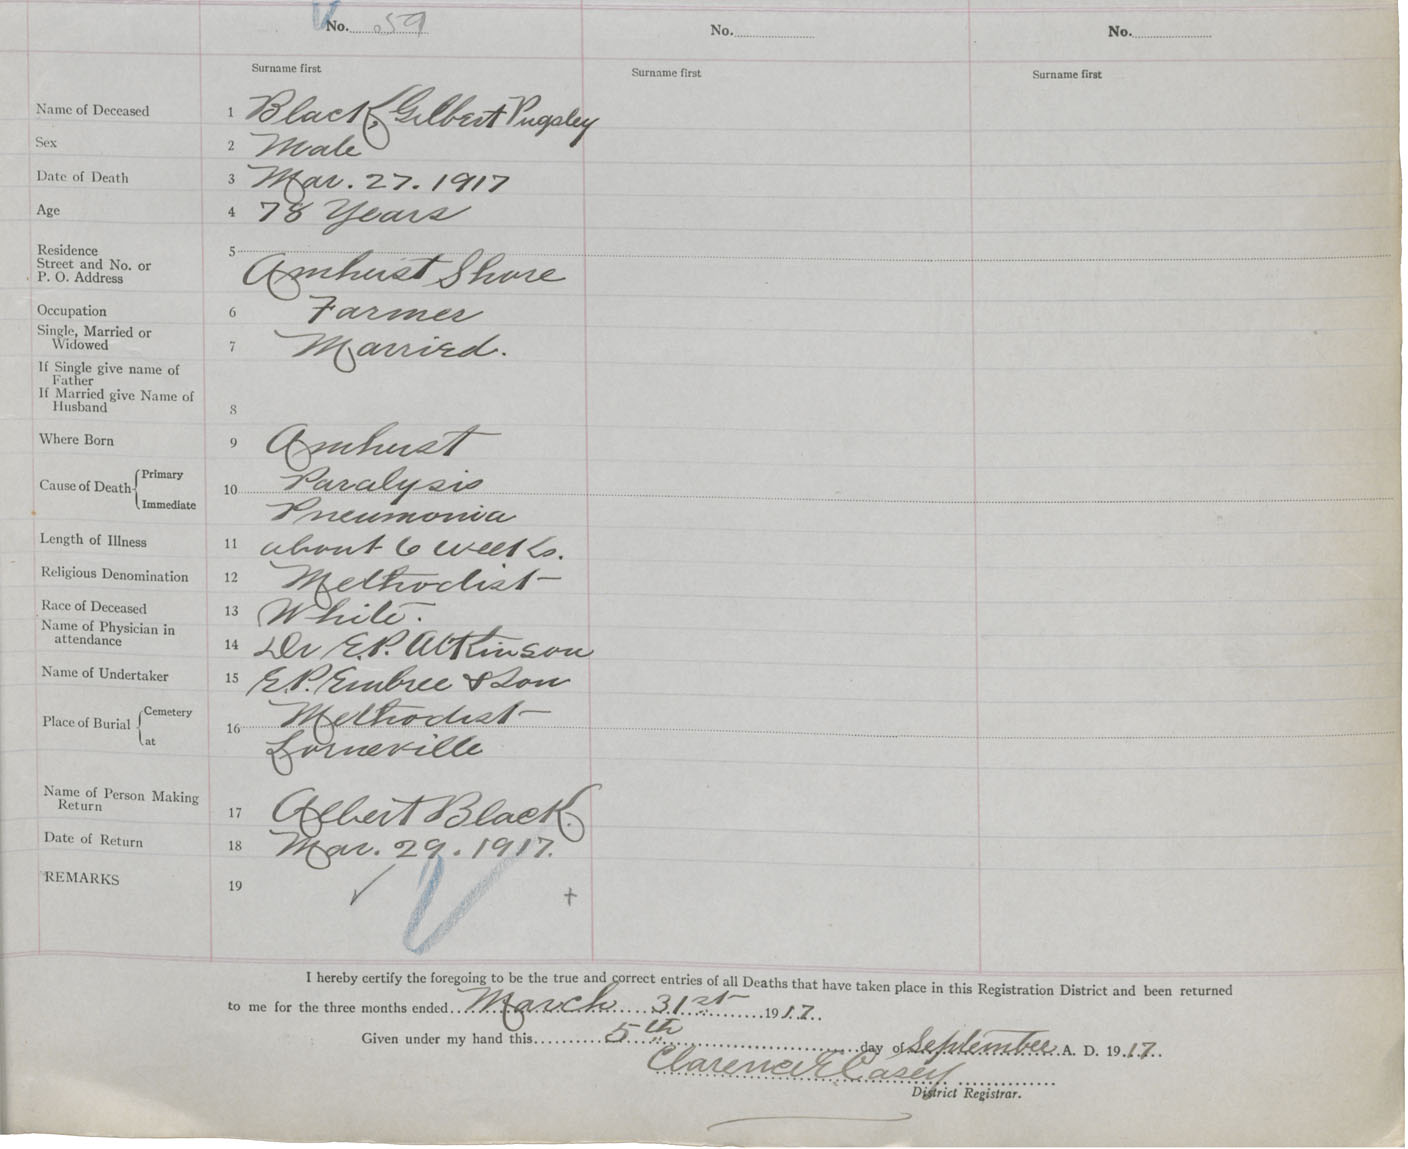 No. 59 No. No.
Surname first Surname first Surname first
Name of Deceased 1 Black, Gilbert Pugsley
Sex 2 Male
Date of Death 3 Mar. 27. 1917
Age 4 78 Years
Residence 5
Street and No. or
P. O. Address Amherst Shore
Occupation 6 Farmer
Single, Married or
Widowed 7 Married.
If Single give name of
Father
If Married give Name of
Husband 8
Where Born 9 Amherst
Cause of Death Primary 10 Paralysis
Immediate Pneumonia
Length of Illness 11 about 6 weeks.
Religious Denomination 12 Methodist
Race of Deceased 13 White.
Name of Physician in
attendance 14 Dr E.P. Atkinson
Name of Undertaker 15 E.P. Embree & Son
Place of Burial Cemetery 16 Methodist
at Lorneville
Name of Person Making
Return 17 Albert Black.
Date of Return 18 Mar. 29. 1917.
REMARKS 19
I hereby certify the foregoing to be the true and correct entries of all Deaths that have taken place in this Registration District and been returned
to me for the three months ended March 31st 1917
Given under my hand this 5th day of September A. D. 1917
Clarence E Casey
District Registrar.